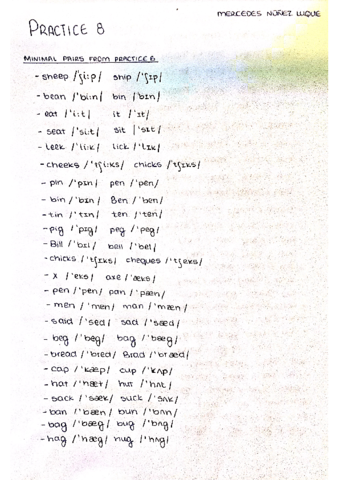 MERCEDES NÚÑEZ LUQUE
PRACTICE 8
MINIMAL PAIRS FROM PRACTICE 6
- sheep /ˈʃi:p/ ship /ˈʃɪp/
- bean /ˈbi:n/ bin /ˈbɪn/
- eat /ˈi:t/ it /ˈɪt/
- seat /ˈsi:t/ sit /ˈsɪt/
- leek /ˈli:k/ lick /ˈlɪk/
- cheeks /ˈtʃi:ks/ chicks /ˈtʃɪks/
- pin /ˈpɪn/ pen /ˈpen/
- bin /ˈbɪn/ Ben /ˈben/
- tin /ˈtɪn/ ten /ˈten/
- pig /ˈpɪg/ peg /ˈpeg/
- Bill /ˈbɪl/ bell /ˈbel/
- chicks /ˈtʃɪks/ cheques /ˈtʃeks/
- x /ˈeks/ axe /ˈæks/
- pen /ˈpen/ pan /ˈpæn/
- men /ˈmen/ man /ˈmæn/
- said /ˈsed/ sad /ˈsæd/
- beg /ˈbeg/ bag /ˈbæg/
- bread /ˈbred/ Brad /ˈbræd/
- cap /ˈkæp/ cup /ˈkʌp/
- hat /ˈhæt/ hut /ˈhʌt/
- sack /ˈsæk/ suck /ˈsʌk/
- ban /ˈbæn/ bun /ˈbʌn/
- bag /ˈbæg/ bug /ˈbʌg/
- hag /ˈhæg/ hug /ˈhʌg/